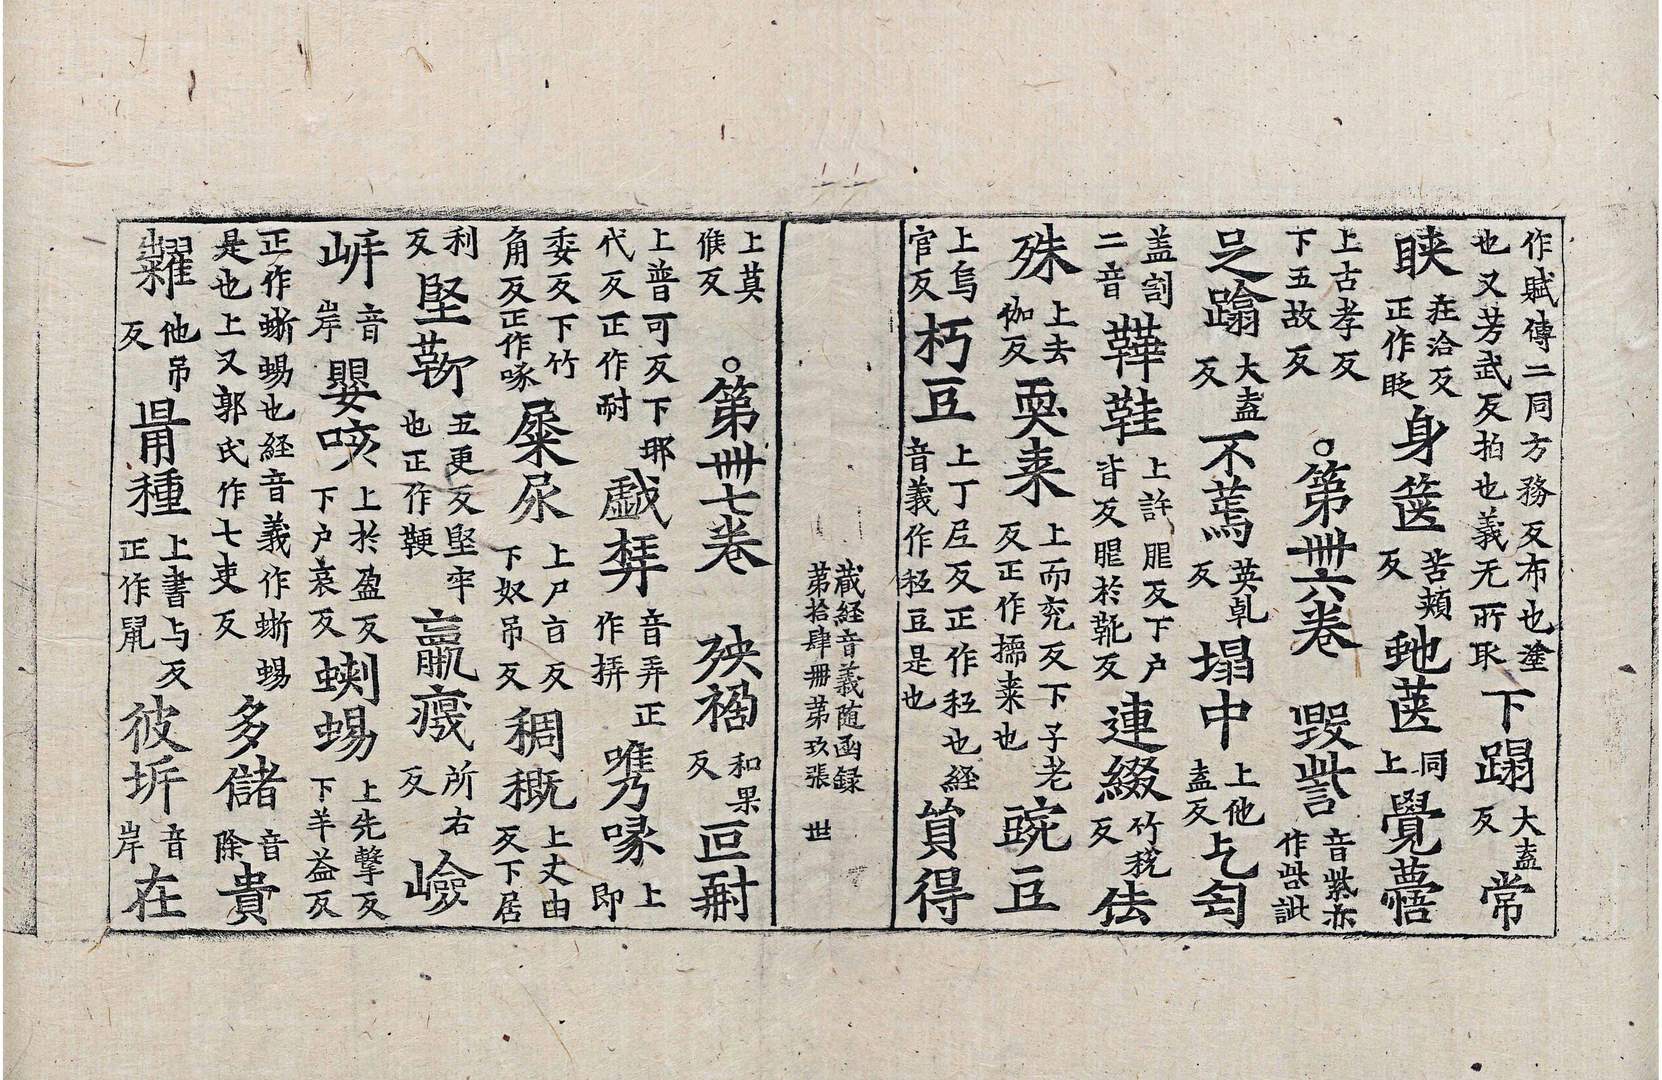 作賦傳二同方務反布也塗也又芳武反拍也義无所取下蹋大盍反常
䀹庄洽反正作眨身篋苦頰反虵医同上覺寤
上古孝反下五故反○第卌六卷毀訾音紫亦作呰訿
足蹹大盍反不蔫英乹反塌中上他盍反乞匃
盖割二音鞾鞋上許反下户皆反於靴反連綴竹稅反佉
殊上去伽反耎枣上而兖反下子老反正作擩枣也豌豆
上烏官反豆上丁尼反正作秷也経音義作秷豆是也貿得
藏経音義随函録
第拾肆冊第玖張 世
上莫候反○第卌七卷殃禍和果反叵耐
上普可反下耶代反正作耐戲挵音弄正作挊喙上即
委反下竹角反正作啄屎尿上尸旨反下奴吊反稠穊上丈由反下居
利反堅䩕五更反堅牢也正作鞕羸瘦所右反嶮
音岸嬰咳上於盈反下户哀反蝲蜴上先擊反下羊益反
正作蜥蜴也経音義作蜥蜴是也上又郭氏作七吏反多儲音除貴
糶他吊反種上書与反正作鼠彼㘸音岸在